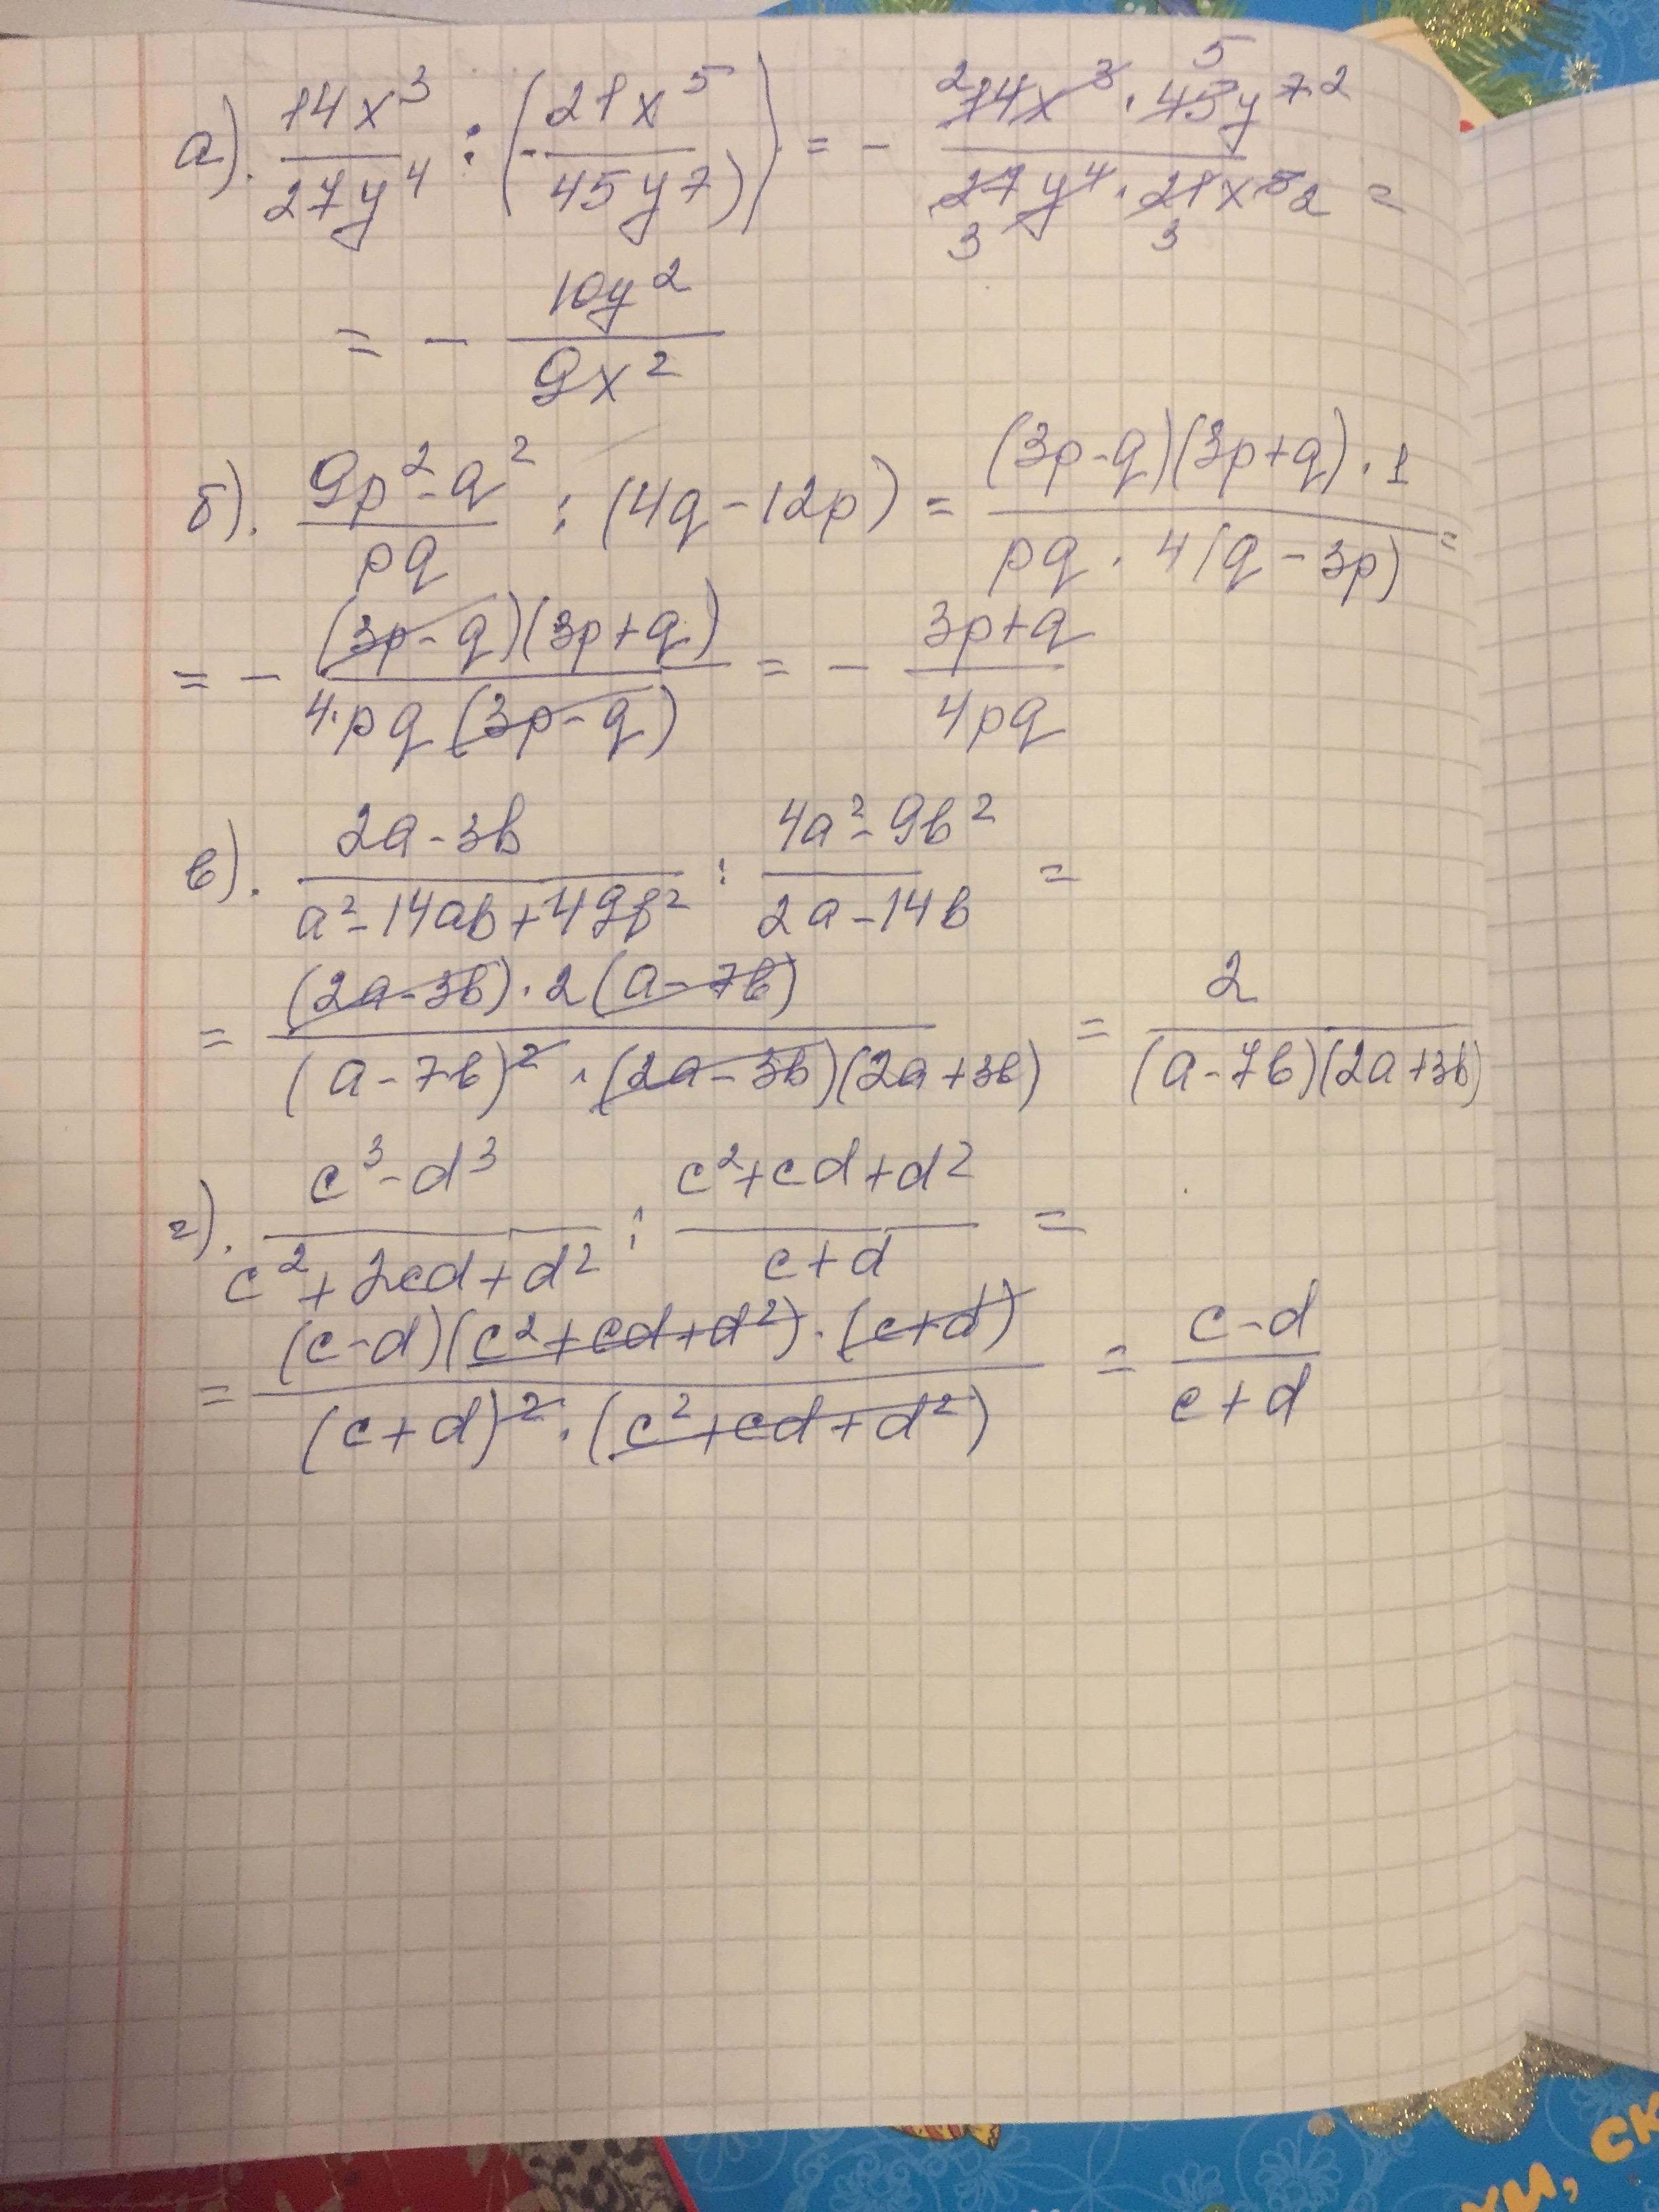 а). 14x³/27y⁴ : (-21x⁵/45y⁷) = - ²14x³ · 45⁵y⁷ ²/27₃y⁴ · 21₃x⁵ ₂ =
= - 10y²/9x²
б). 9p²-q²/pq : (4q-12p) = (3p-q)(3p+q)·1/pq · 4(q-3p) =
= - (3p-q)(3p+q)/4·pq(3p-q) = - 3p+q/4pq
в). 2a-3b/a²-14ab+49b² : 4a²-9b²/2a-14b =
= (2a-3b)·2(a-7b)/(a-7b)²·(2a-3b)(2a+3b) = 2/(a-7b)(2a+3b)
г). c³-d³/c²+2cd+d² : c²+cd+d²/c+d =
= (c-d)(c²+cd+d²)·(c+d)/(c+d)²·(c²+cd+d²) = c-d/c+d
ми, ск